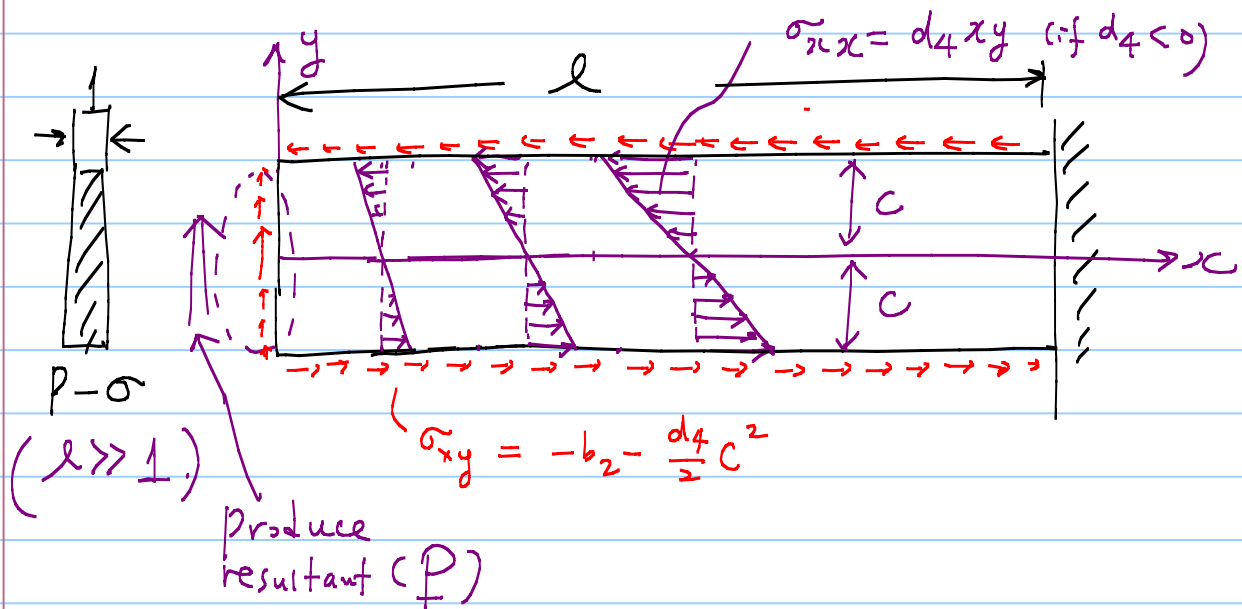 σxx = d4xy (if d4<0)
y
l
1
c
x
c
P-σ
(l>>1)
σxy = -b2 - d4/2 c²
produce
resultant (P)